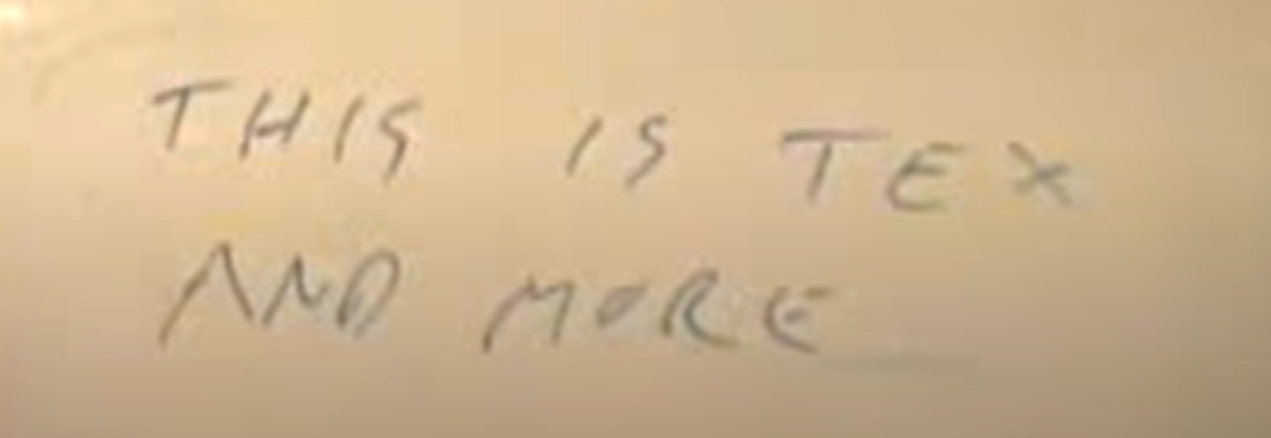 THIS IS TEX
AND MORE